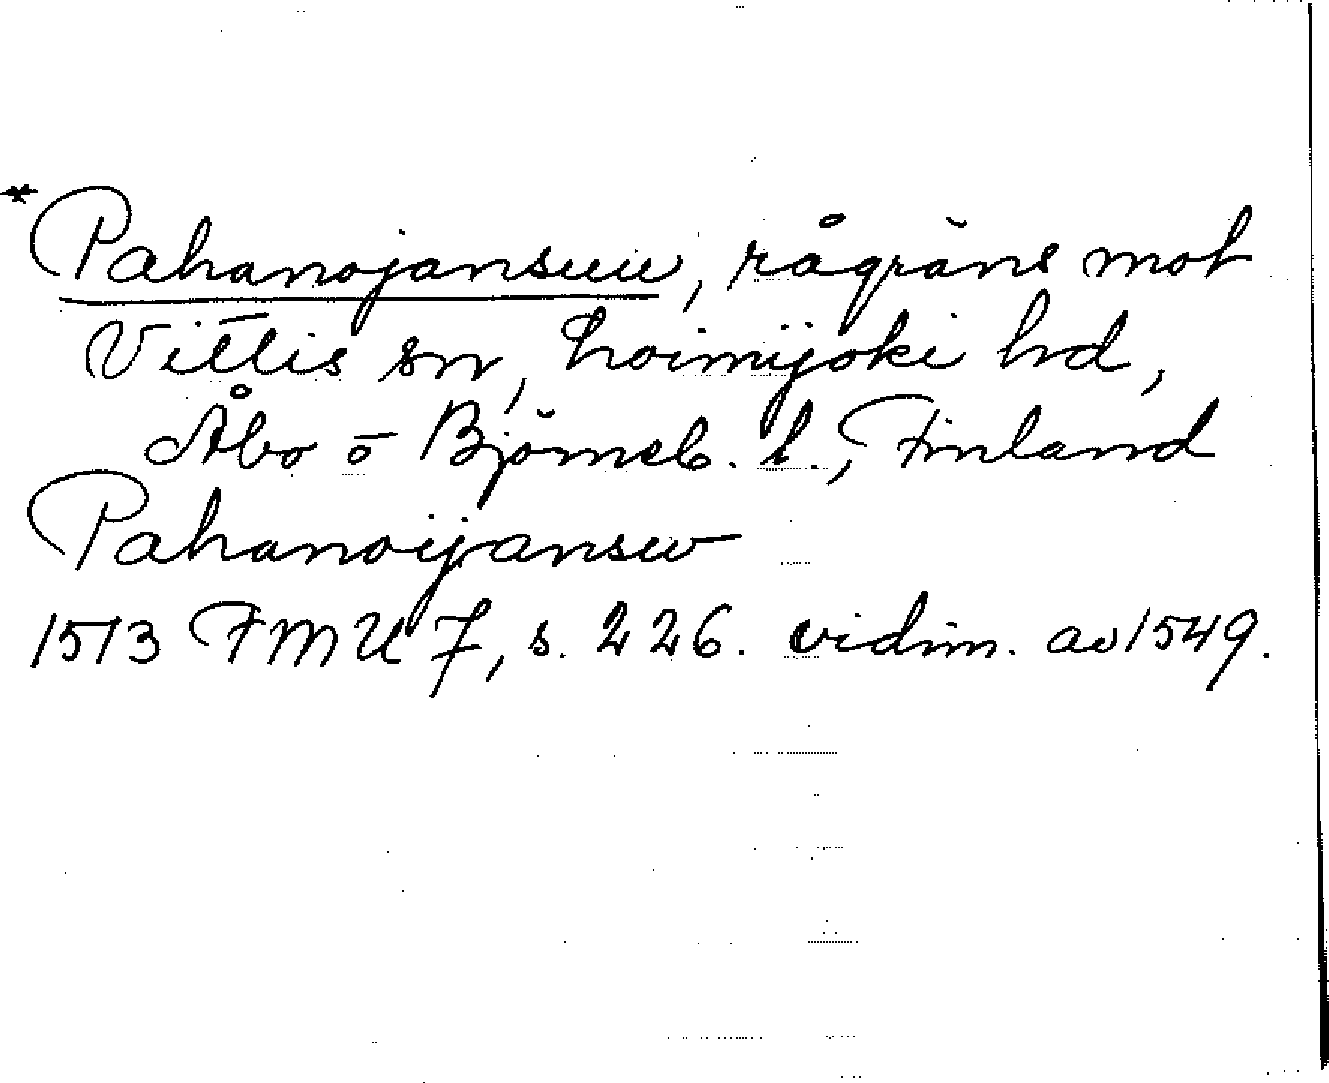 *Pahanojansuu, rågräns mot
Vittis sn, Loimijoki hd,
Åbo o Björneb. l., Finland
Pahanoijansw
1513 FMU 7, s. 226. vidim. av 1549.